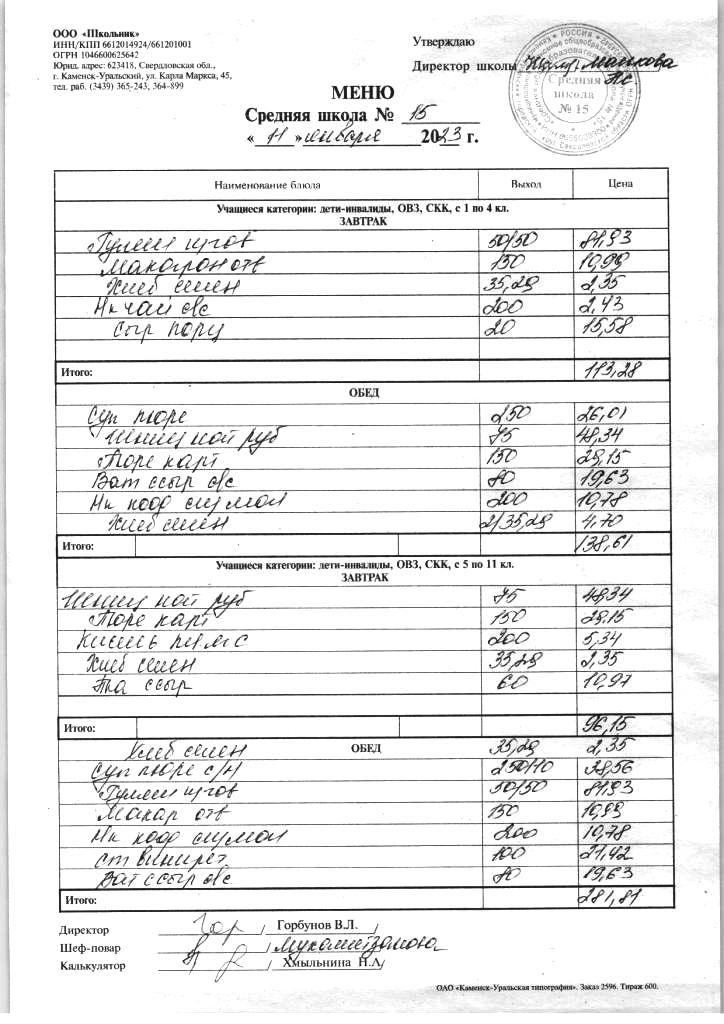 ООО «Школьник»
ИНН/КПП 6612014924/661201001
ОГРН 1046600625642
Юрид. адрес: 623418, Свердловская обл.,
г. Каменск-Уральский, ул. Карла Маркса, 45,
тел. раб. (3439) 365-243, 364-899
Утверждаю
Директор школы
Средняя
школа
№ 15
МЕНЮ
Средняя школа № 15
« 11 » января 2023 г.
Наименование блюда Выход Цена
Учащиеся категории: дети-инвалиды, ОВЗ, СКК, с 1 по 4 кл.
ЗАВТРАК
Гуляш изгов 50/50 81,93
Макарон отв 150 10,99
Хлеб пшен 35,29 2,35
Нк чай с/с 200 2,43
Сыр порц 20 15,58
Итого: 113,28
ОБЕД
Суп пюре 250 26,01
Шниц нат руб 75 48,34
Пюре карт 150 29,15
Ват ссыр с/с 80 19,63
Нк кофе сгумол 200 10,78
Хлеб пшен 2/35,29 4,70
Итого: 138,61
Учащиеся категории: дети-инвалиды, ОВЗ, СКК, с 5 по 11 кл.
ЗАВТРАК
Шниц нат руб 75 48,34
Пюре карт 150 29,15
Кисель 200 5,34
Хлеб пшен 35,29 2,35
ссыр 60 10,97
Итого: 96,15
Хлеб пшен ОБЕД 35,29 2,35
Суп пюре с/н 250/10 38,56
Гуляш изгов 50/50 81,93
Макар отв 150 10,99
Нк кофе сгумол 200 10,78
ст винегрет 100 21,42
Ват ссыр с/с 80 19,63
Итого: 281,81
Директор / Горбунов В.Л. /
Шеф-повар / /
Калькулятор / Хмыльнина Н.А/
ОАО «Каменск-Уральская типография». Заказ 2596. Тираж 600.